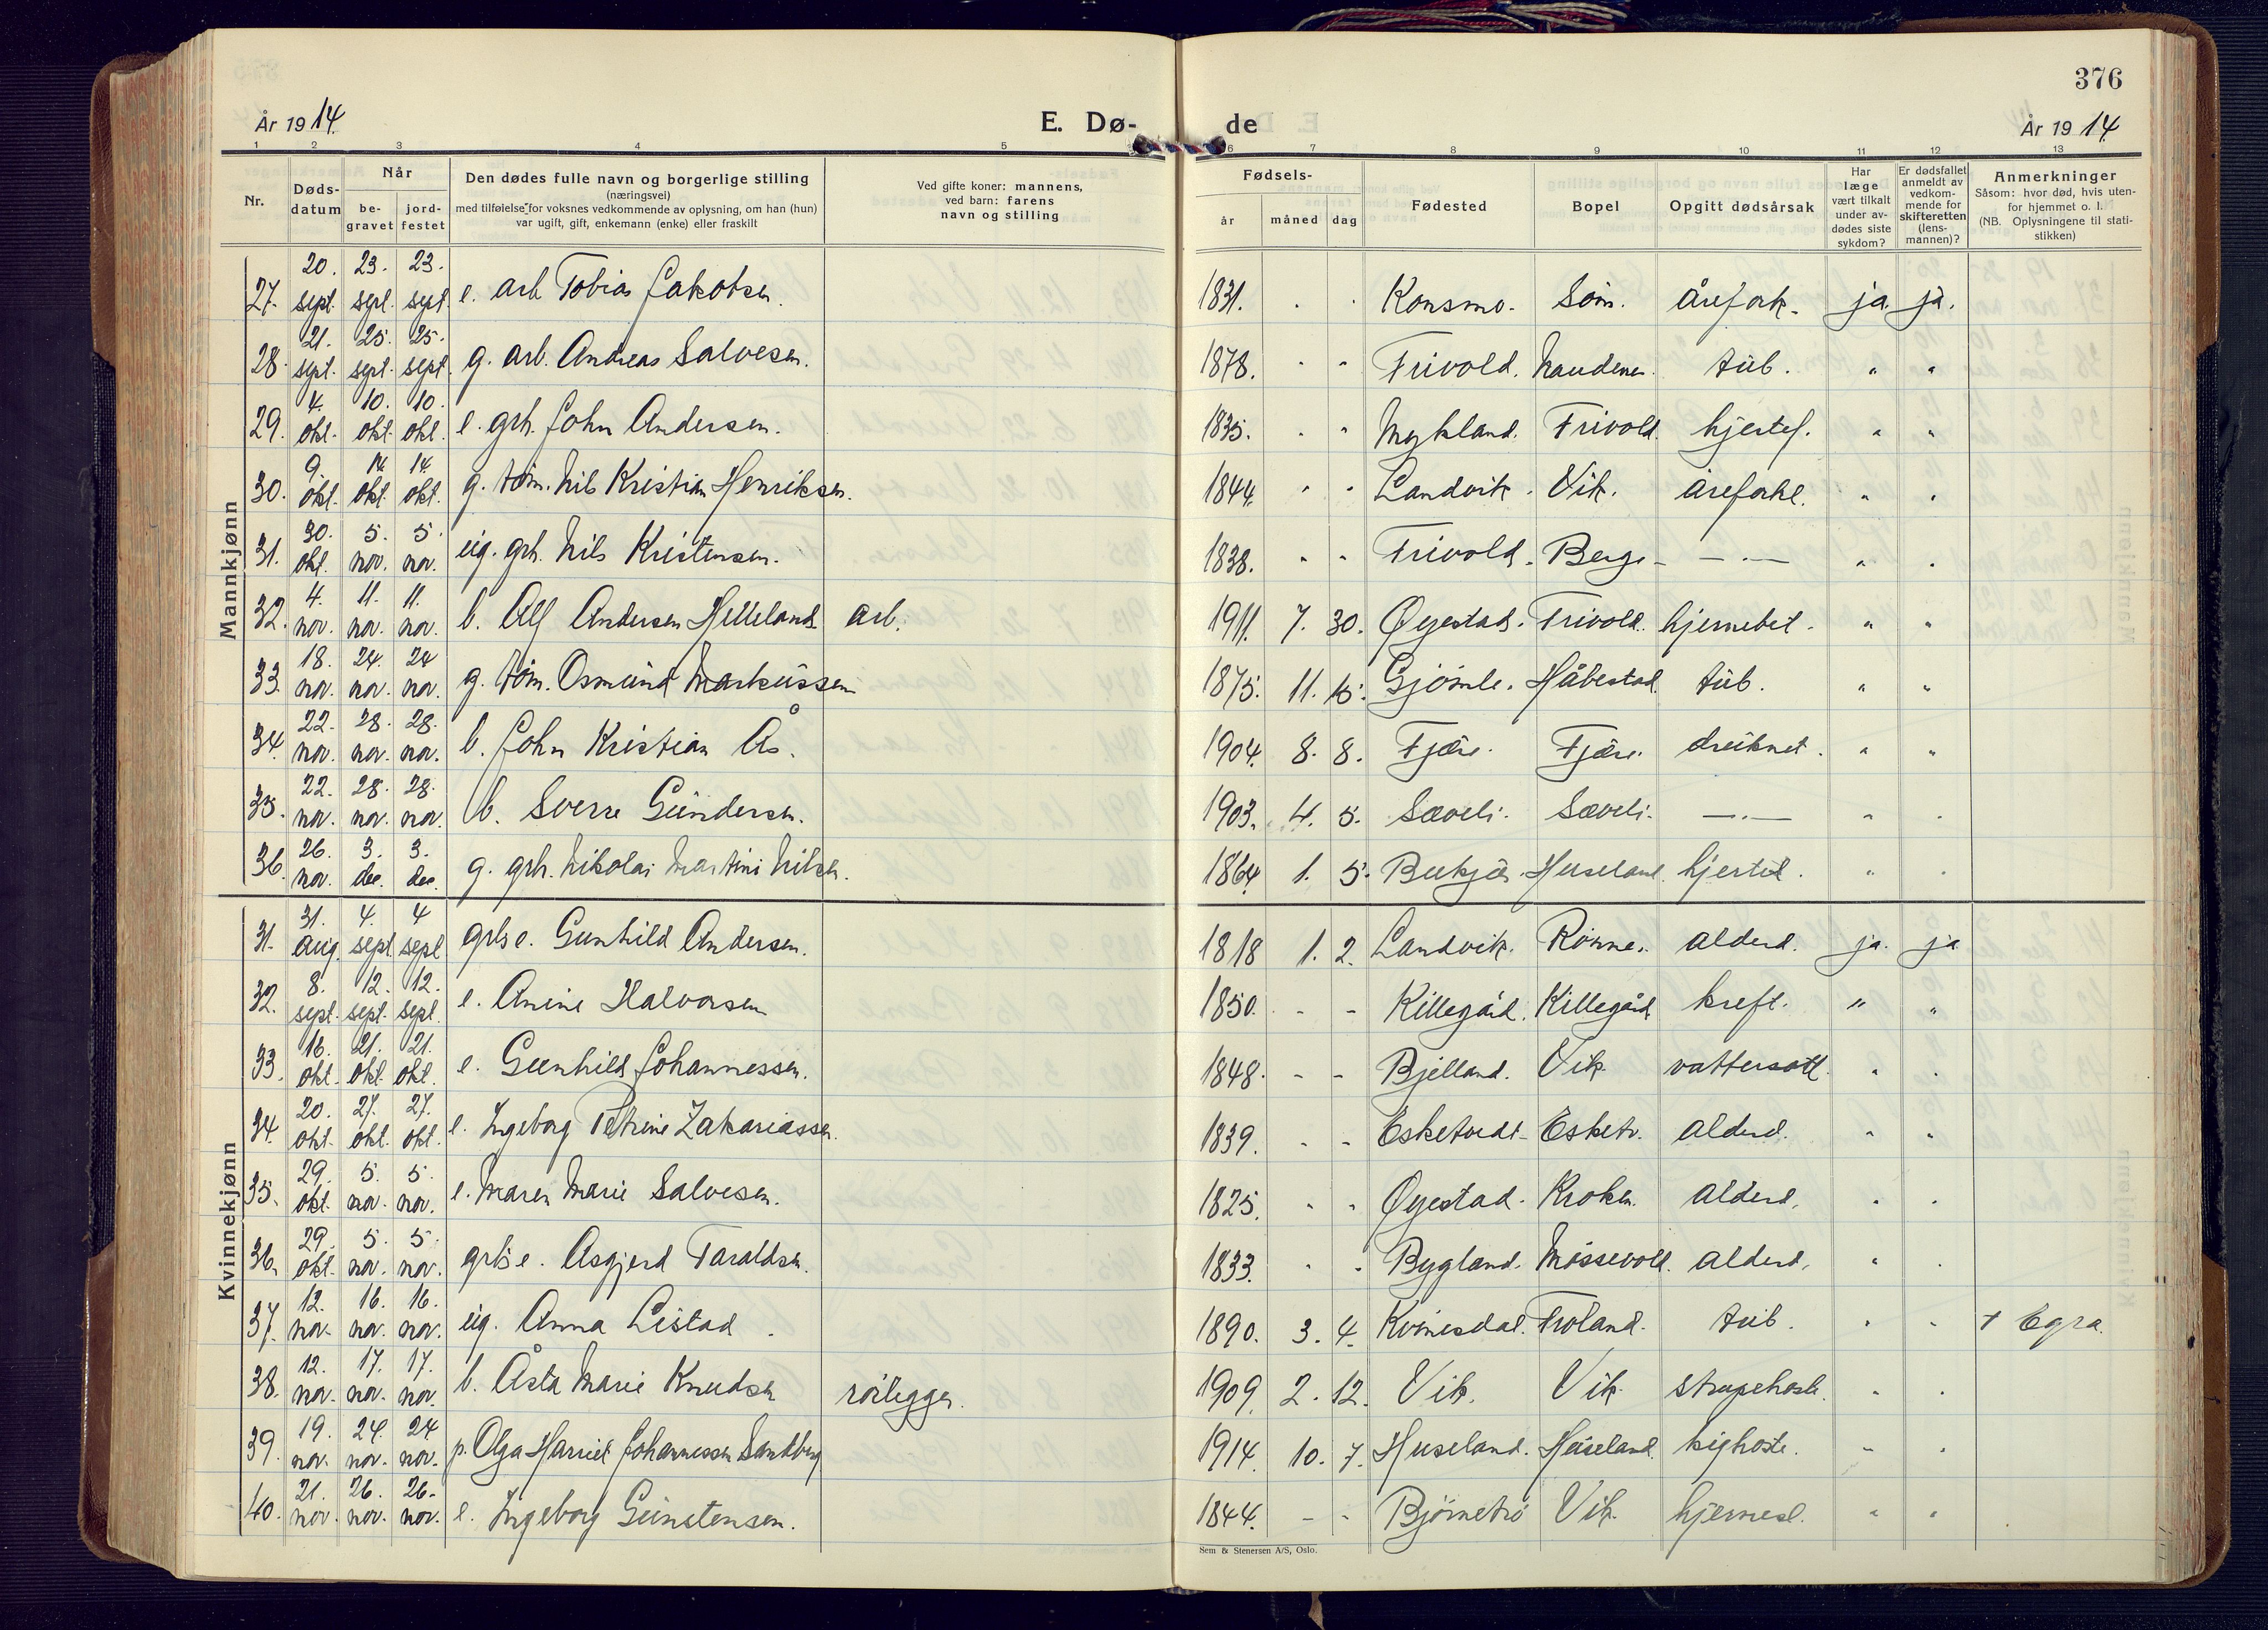 376
År 1914.
E. Dø-
de
År 1914.
1 2 3 4 5 6 7 8 9 10 11 12 13
Nr.
Døds-
datum
Når
be-
gravet
jord-
festet
Den dødes fulle navn og borgerlige stilling
(næringsvei)
med tilføielse for voksnes vedkommende av oplysning, om han (hun)
var ugift, gift, enkemann (enke) eller fraskilt
Ved gifte koner: mannens,
ved barn: farens
navn og stilling
Fødsels-
år måned dag
Fødested
Bopel
Opgitt dødsårsak
Har
læge
vært tilkalt
under av-
dødes siste
sykdom?
Er dødsfallet
anmeldt av
vedkom-
mende for
skifteretten
(lens-
mannen)?
Anmerkninger
Såsom: hvor død, hvis uten-
for hjemmet o. l.
(NB. Oplysningene til stati-
stikken)
Mannkjønn
27. 20. sept. 23. sept. 23. sept. e. arb. Tobias Jakobsen. 1831. . . Konsmo. Søm. årefork. ja. ja.
28. 21. sept. 25. sept. 25. sept. g. arb. Andreas Salvesen. 1878. - - Frivold. tub. " "
29. 4. okt. 10. okt. 10. okt. e. grh. John Andersen. 1835. - - Mykland. Frivold. hjertef. " "
30. 9. okt. 14. okt. 14. okt. g. tøm. Nils Kristian Henriksen. 1844. " " Landvik. Vik. åreforkl. " "
31. 30. okt. 5. nov. 5. nov. ug. grh. Nils Kristensen. 1838. " " Frivold. Berge - — . — " "
32. 4. nov. 11. nov. 11. nov. b. Alf Andersen Helleland arb. 1911. 7. 30. Øyestad. Frivold. hjernebet. " "
33. 18. nov. 24. nov. 24 nov. g. tøm. Osmund Markussen 1875. 11. 15. Gjømle. Håbestad. tub. " "
34. 22. nov. 28. nov. 28. nov. b. John Kristian Ås. 1904. 8. 8. Fjære. Fjære. druknet. " "
35. 22. nov. 28. nov. 28. nov. b. Sverre Gundersen. 1903. 4. 5. Sæveli. Sæveli. — . — " "
36. 26. nov. 3. des. 3. des. g. grh. Nikolai Martini Nilsen. 1864 1. 5. Huseland. " "
Kvinnekjønn
31. 31. aug. 4. sept. 4 sept. grbs e. Gunhild Andersen. 1818 1. 2. Landvik. Rønnes. alderd. ja. ja
32. 8. sept. 12. sept. 12. sept. e. Anine Halvorsen 1850. - - Killegård. Killegård kreft. " "
33. 16. okt. 21. okt. 21. okt. e. Gunhild Johannessen. 1848. - - Bjelland. Vik. vattersott. " "
34. 20. okt. 27. okt. 27. okt. e. Ingeborg Petrine Zakariassen. 1839. - - Esketvedt - Esketv. alderd. " "
35. 29. okt. 5. nov. 5. nov. e. Maren Marie Salvesen. 1825. " " Øyestad. Kroken. alderd. " "
36. 29. okt. 5. nov. 5. nov. grbs e. Asgjerd Taraldsen. 1833. " " Bygland. Møssevold. alderd. " "
37. 12. nov. 16. nov. 16. nov. ug. Anna Listad. 1890. 3. 4. Kvinesdal. Froland. tub. " " + Egra.
38. 12. nov. 17. nov. 17. nov. b. Åsta Marie Knudsen rørlegger. 1909. 2. 12. Vik. Vik. strupehoste. " "
39. 19. nov. 24. nov. 24 nov. p. Olga Harriet Johannessen Sandberg 1914. 10. 7. Huseland. Huseland. kighoste. " "
40. 21. nov. 26. nov. 26. nov. e. Ingeborg Gunstensen. 1844. - - Bjørnetrø Vik. hjernesl. " "
Sem & Stenersen A/S, Oslo.